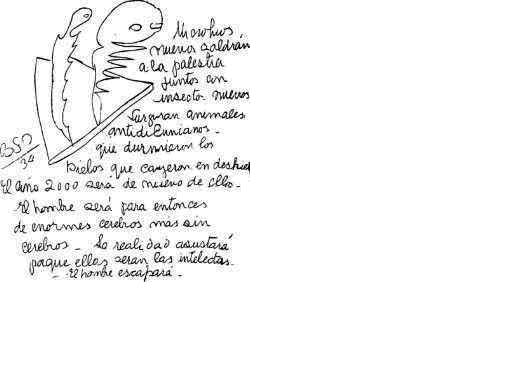 nuevos saldrán
a la palestra
juntos con
insectos nuevos
Surgirán animales
antidiluvianos -
que durmieron los
hielos que cayeron en deshiel
El año 2000 será de nuevo de ellos -
El hombre será para entonces
de enormes cerebros más sin
cerebros - La realidad asustará
porque ellas seran las intelectas -
- El hombre escapará -
BSP
34